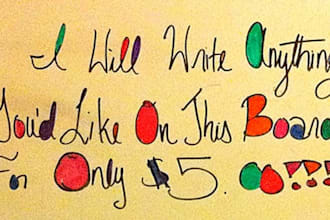 I Will Write Anything
You'd Like On This Board
For Only $5. oo???